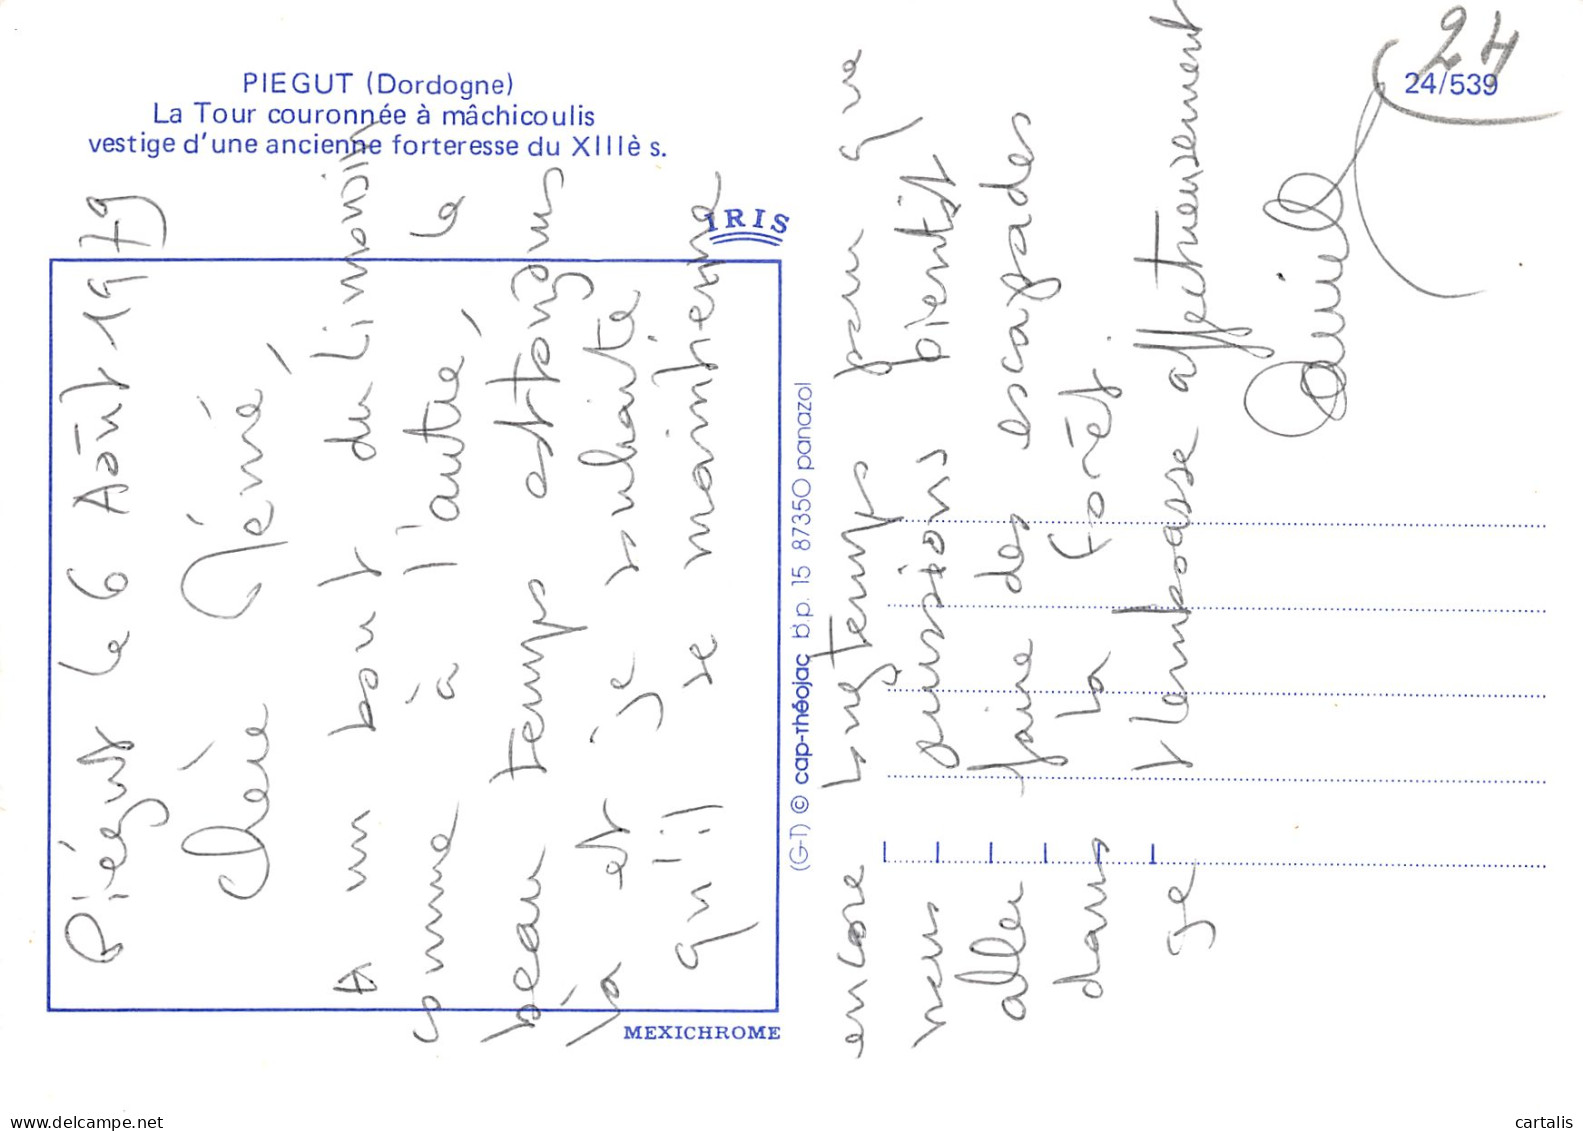 PIEGUT (Dordogne)
La Tour couronnée à mâchicoulis
vestige d'une ancienne forteresse du XIIIè s.
24
24/539
IRIS
Piégut le 6 Août 1979
Chère Mémé,
D'un bout du Limousin
comme à l'autre, le
beau temps est toujours
là et je souhaite
qu'il se maintienne
encore longtemps pour que
nous puissions bientôt
aller faire des escapades
dans la forêt.
Je t'embrasse affectueusement
(G-T) © cap-théojac b.p. 15 87350 panazol
MEXICHROME
www.delcampe.net
cartalis